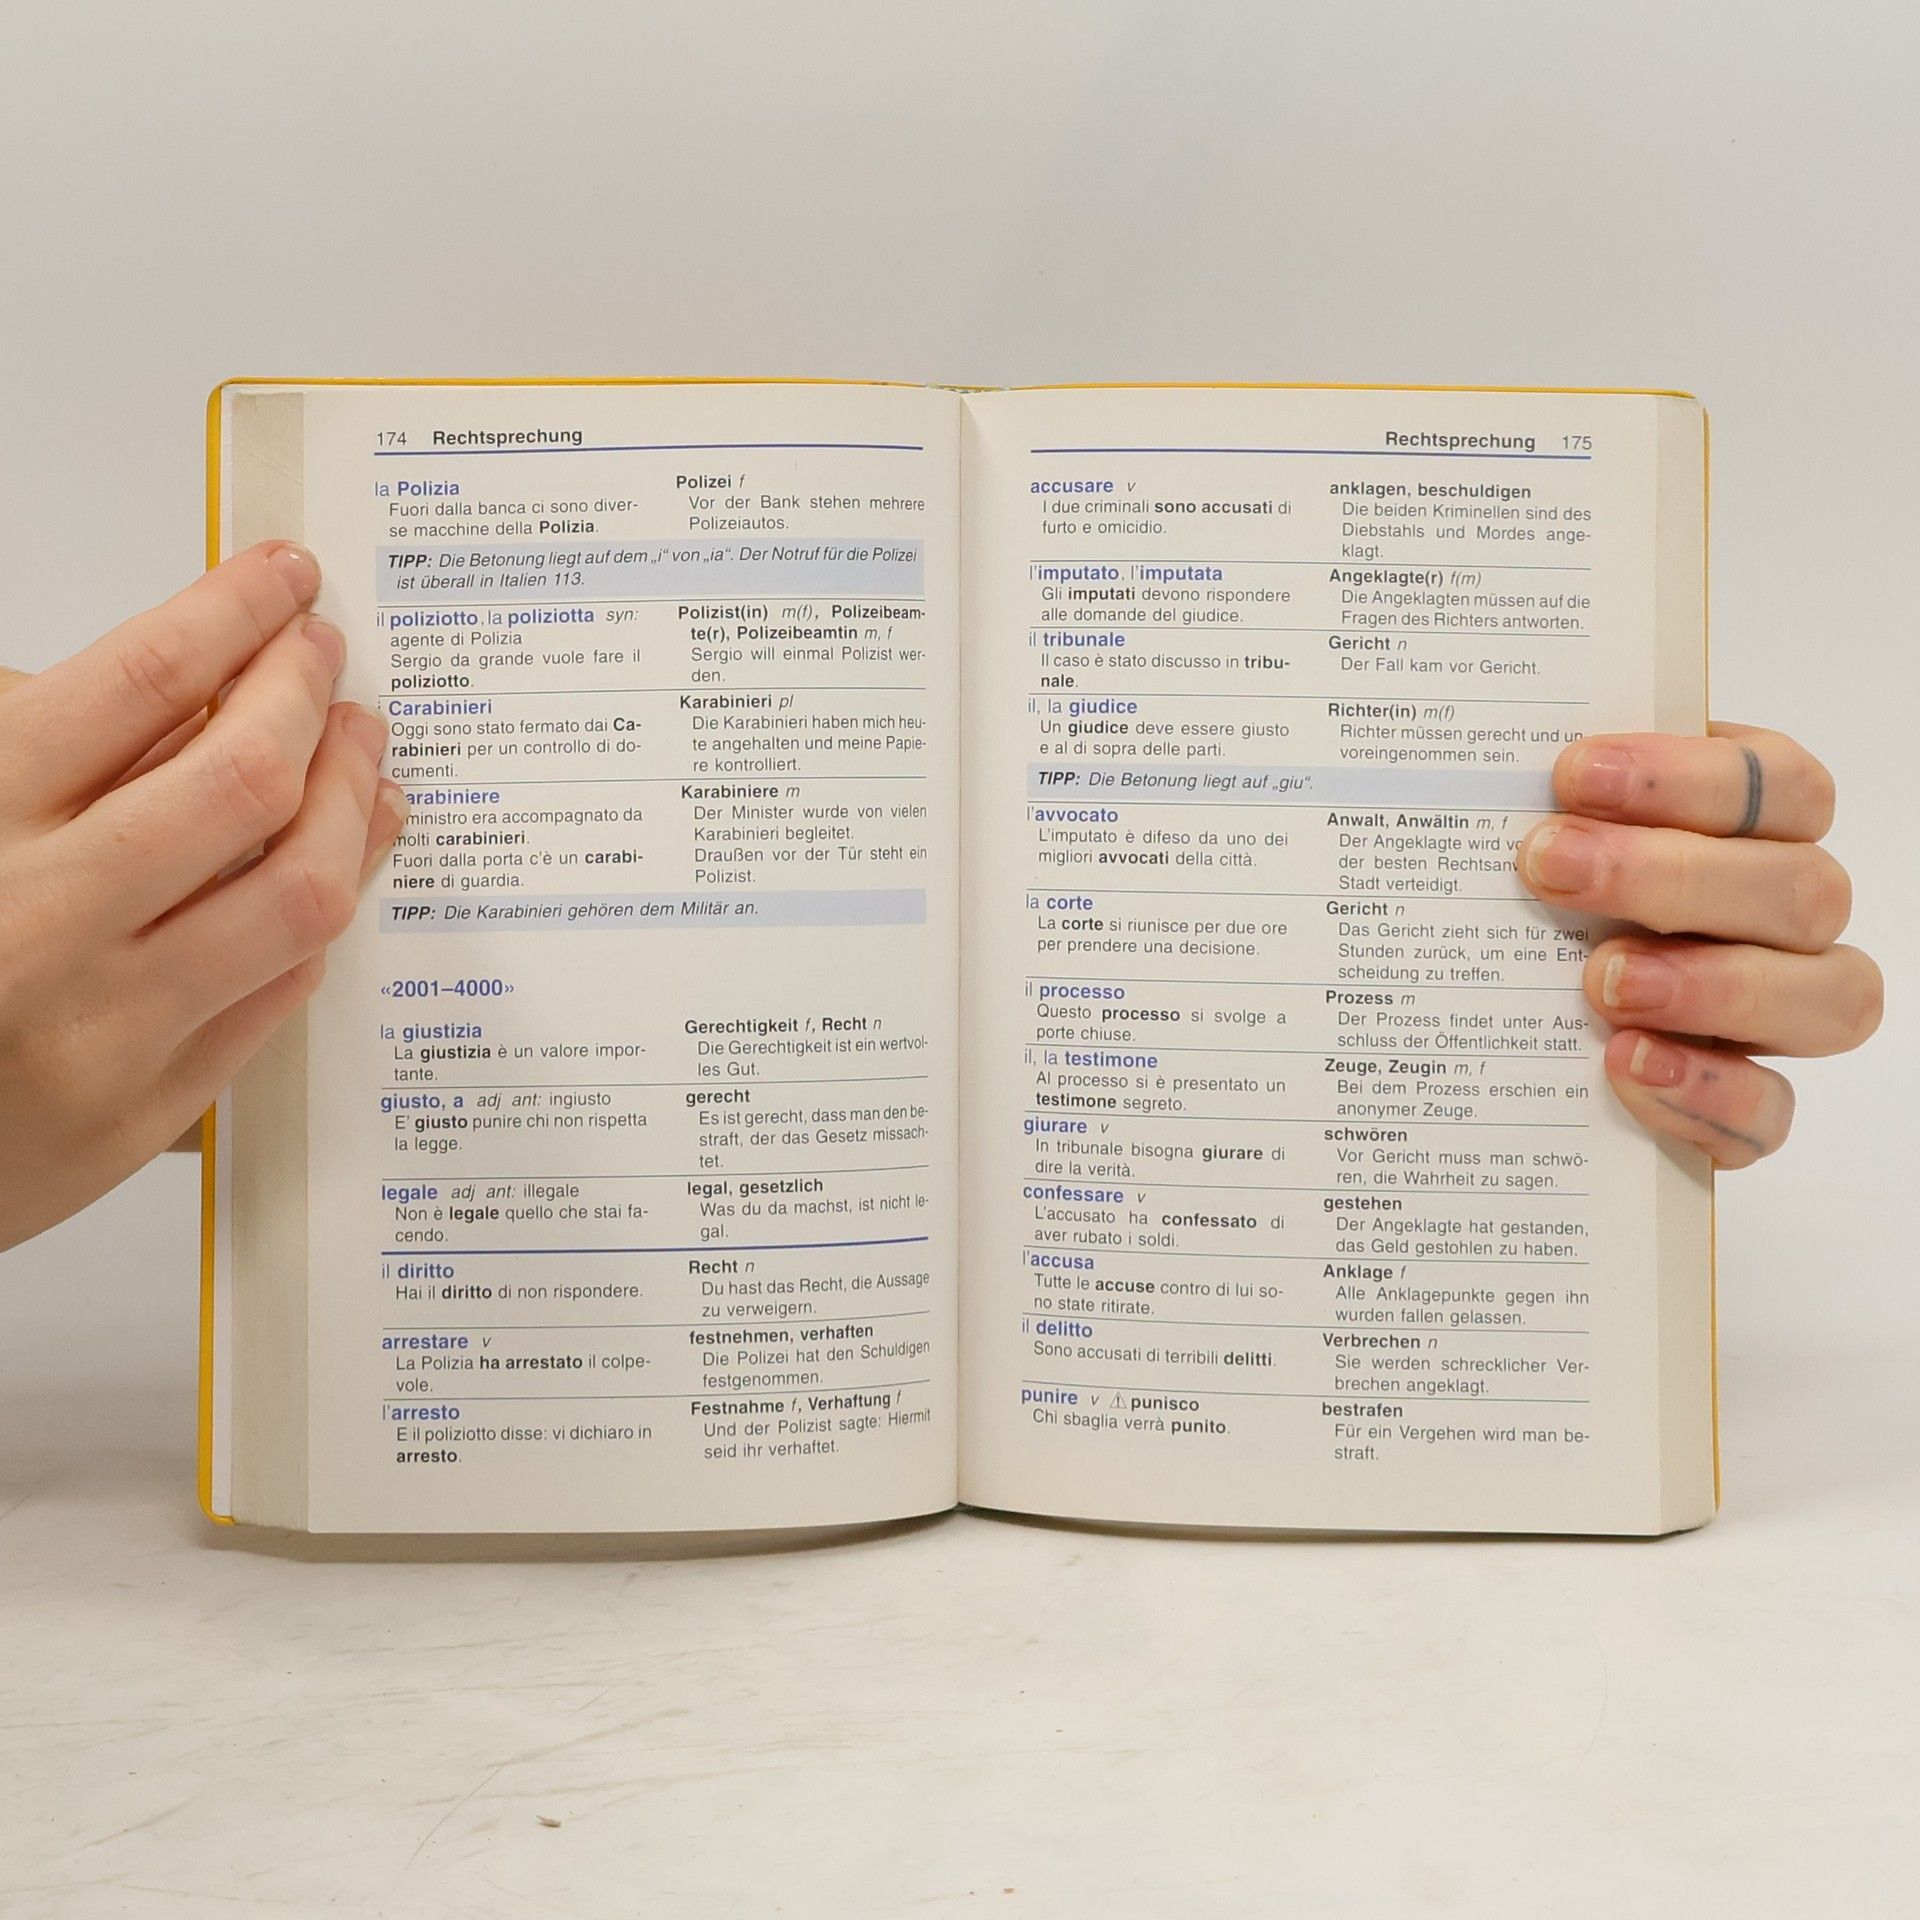 174 Rechtsprechung
la Polizia
Fuori dalla banca ci sono diver-
se macchine della Polizia.
Polizei f
Vor der Bank stehen mehrere
Polizeiautos.
TIPP: Die Betonung liegt auf dem „i“ von „ia“. Der Notruf für die Polizei
ist überall in Italien 113.
il poliziotto, la poliziotta syn:
agente di Polizia
Sergio da grande vuole fare il
poliziotto.
Polizist(in) m(f), Polizeibeam-
te(r), Polizeibeamtin m, f
Sergio will einmal Polizist wer-
den.
i Carabinieri
Oggi sono stato fermato dai Ca-
rabinieri per un controllo di do-
cumenti.
Karabinieri pl
Die Karabinieri haben mich heu-
te angehalten und meine Papie-
re kontrolliert.
arabiniere
ministro era accompagnato da
molti carabinieri.
Fuori dalla porta c'è un carabi-
niere di guardia.
Karabiniere m
Der Minister wurde von vielen
Karabinieri begleitet.
Draußen vor der Tür steht ein
Polizist.
TIPP: Die Karabinieri gehören dem Militär an.
«2001–4000»
la giustizia
La giustizia è un valore impor-
tante.
Gerechtigkeit f, Recht n
Die Gerechtigkeit ist ein wertvol-
les Gut.
giusto, a adj ant: ingiusto
E' giusto punire chi non rispetta
la legge.
gerecht
Es ist gerecht, dass man den be-
straft, der das Gesetz missach-
tet.
legale adj ant: illegale
Non è legale quello che stai fa-
cendo.
legal, gesetzlich
Was du da machst, ist nicht le-
gal.
il diritto
Hai il diritto di non rispondere.
Recht n
Du hast das Recht, die Aussage
zu verweigern.
arrestare v
La Polizia ha arrestato il colpe-
vole.
festnehmen, verhaften
Die Polizei hat den Schuldigen
festgenommen.
l'arresto
E il poliziotto disse: vi dichiaro in
arresto.
Festnahme f, Verhaftung f
Und der Polizist sagte: Hiermit
seid ihr verhaftet.
Rechtsprechung 175
accusare v
I due criminali sono accusati di
furto e omicidio.
anklagen, beschuldigen
Die beiden Kriminellen sind des
Diebstahls und Mordes ange-
klagt.
l'imputato, l'imputata
Gli imputati devono rispondere
alle domande del giudice.
Angeklagte(r) f(m)
Die Angeklagten müssen auf die
Fragen des Richters antworten.
il tribunale
Il caso è stato discusso in tribu-
nale.
Gericht n
Der Fall kam vor Gericht.
il, la giudice
Un giudice deve essere giusto
e al di sopra delle parti.
Richter(in) m(f)
Richter müssen gerecht und un-
voreingenommen sein.
TIPP: Die Betonung liegt auf „giu“.
l'avvocato
L'imputato è difeso da uno dei
migliori avvocati della città.
Anwalt, Anwältin m, f
Der Angeklagte wird
der besten
Stadt verteidigt.
la corte
La corte si riunisce per due ore
per prendere una decisione.
Gericht n
Das Gericht zieht sich für zwei
Stunden zurück, um eine Ent-
scheidung zu treffen.
il processo
Questo processo si svolge a
porte chiuse.
Prozess m
Der Prozess findet unter Aus-
schluss der Öffentlichkeit statt.
il, la testimone
Al processo si è presentato un
testimone segreto.
Zeuge, Zeugin m, f
Bei dem Prozess erschien ein
anonymer Zeuge.
giurare v
In tribunale bisogna giurare di
dire la verità.
schwören
Vor Gericht muss man schwö-
ren, die Wahrheit zu sagen.
confessare v
L'accusato ha confessato di
aver rubato i soldi.
gestehen
Der Angeklagte hat gestanden,
das Geld gestohlen zu haben.
l'accusa
Tutte le accuse contro di lui so-
no state ritirate.
Anklage f
Alle Anklagepunkte gegen ihn
wurden fallen gelassen.
il delitto
Sono accusati di terribili delitti.
Verbrechen n
Sie werden schrecklicher Ver-
brechen angeklagt.
punire v ⚠ punisco
Chi sbaglia verrà punito.
bestrafen
Für ein Vergehen wird man be-
straft.